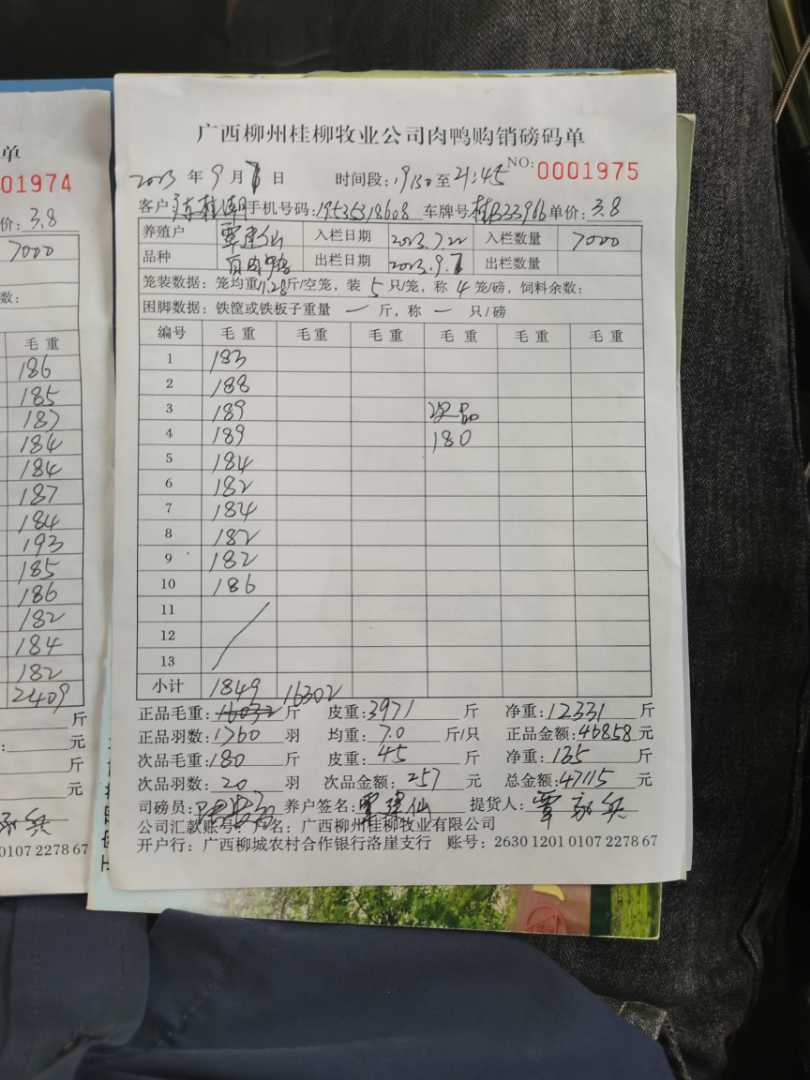 单
01974
价: 3.8
7000
数:
毛 重
186
185
187
184
184
187
184
193
185
186
182
184
182
2409
斤
元
斤
元
0107 2278 67
广西柳州桂柳牧业公司肉鸭购销磅码单
2023 年 9 月 日 时间段: 19:30 至 21:45 NO: 0001975
客户 手机号码: 19535318608 车牌号 桂B23966 单价: 3.8
养殖户 覃建仙 入栏日期 2023.7.22 入栏数量 7000
品种 白肉鸭 出栏日期 2023.9.7 出栏数量
笼装数据: 笼均重 11.28 斤/空笼, 装 5 只/笼, 称 4 笼/磅, 饲料余数:
困脚数据: 铁筐或铁板子重量 一 斤, 称 一 只/磅
编号 毛 重 毛 重 毛 重 毛 重 毛 重 毛 重
1 183
2 188
3 189 次品
4 189 180
5 184
6 182
7 184
8 182
9 182
10 186
11
12
13
小计 1849 16302
正品毛重: 16032 斤 皮重: 3971 斤 净重: 12331 斤
正品羽数: 1760 羽 均重: 7.0 斤/只 正品金额: 46858 元
次品毛重: 180 斤 皮重: 45 斤 净重: 135 斤
次品羽数: 20 羽 次品金额: 257 元 总金额: 47115 元
司磅员: 养户签名: 覃建仙 提货人: 覃
公司汇款账号: 户名: 广西柳州桂柳牧业有限公司
开户行: 广西柳城农村合作银行洛崖支行 账号: 2630 1201 0107 2278 67